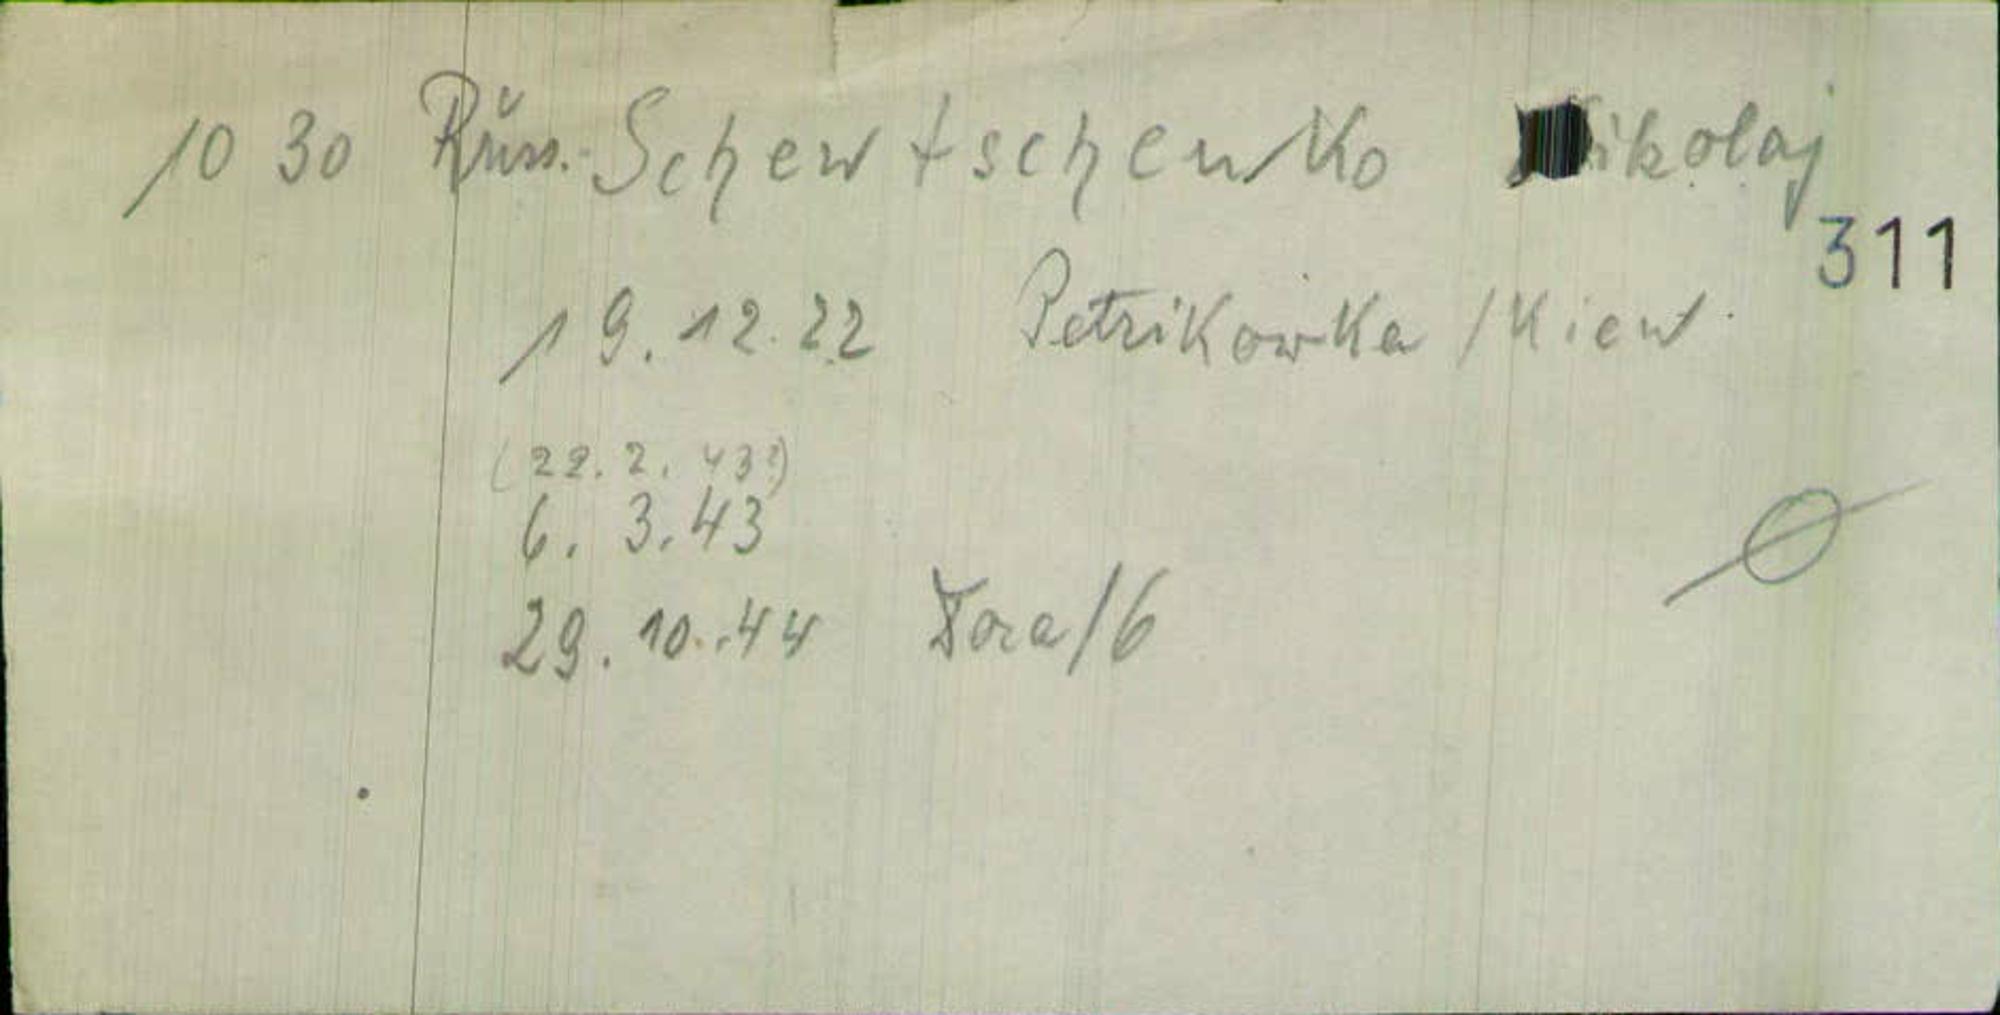 1030 Russ.- Schewtschenko Nikolaj
311
19.12.22 Petrikowka / Kiew.
(22. 2. 43?)
6. 3. 43
29. 10. 44 Dora/6